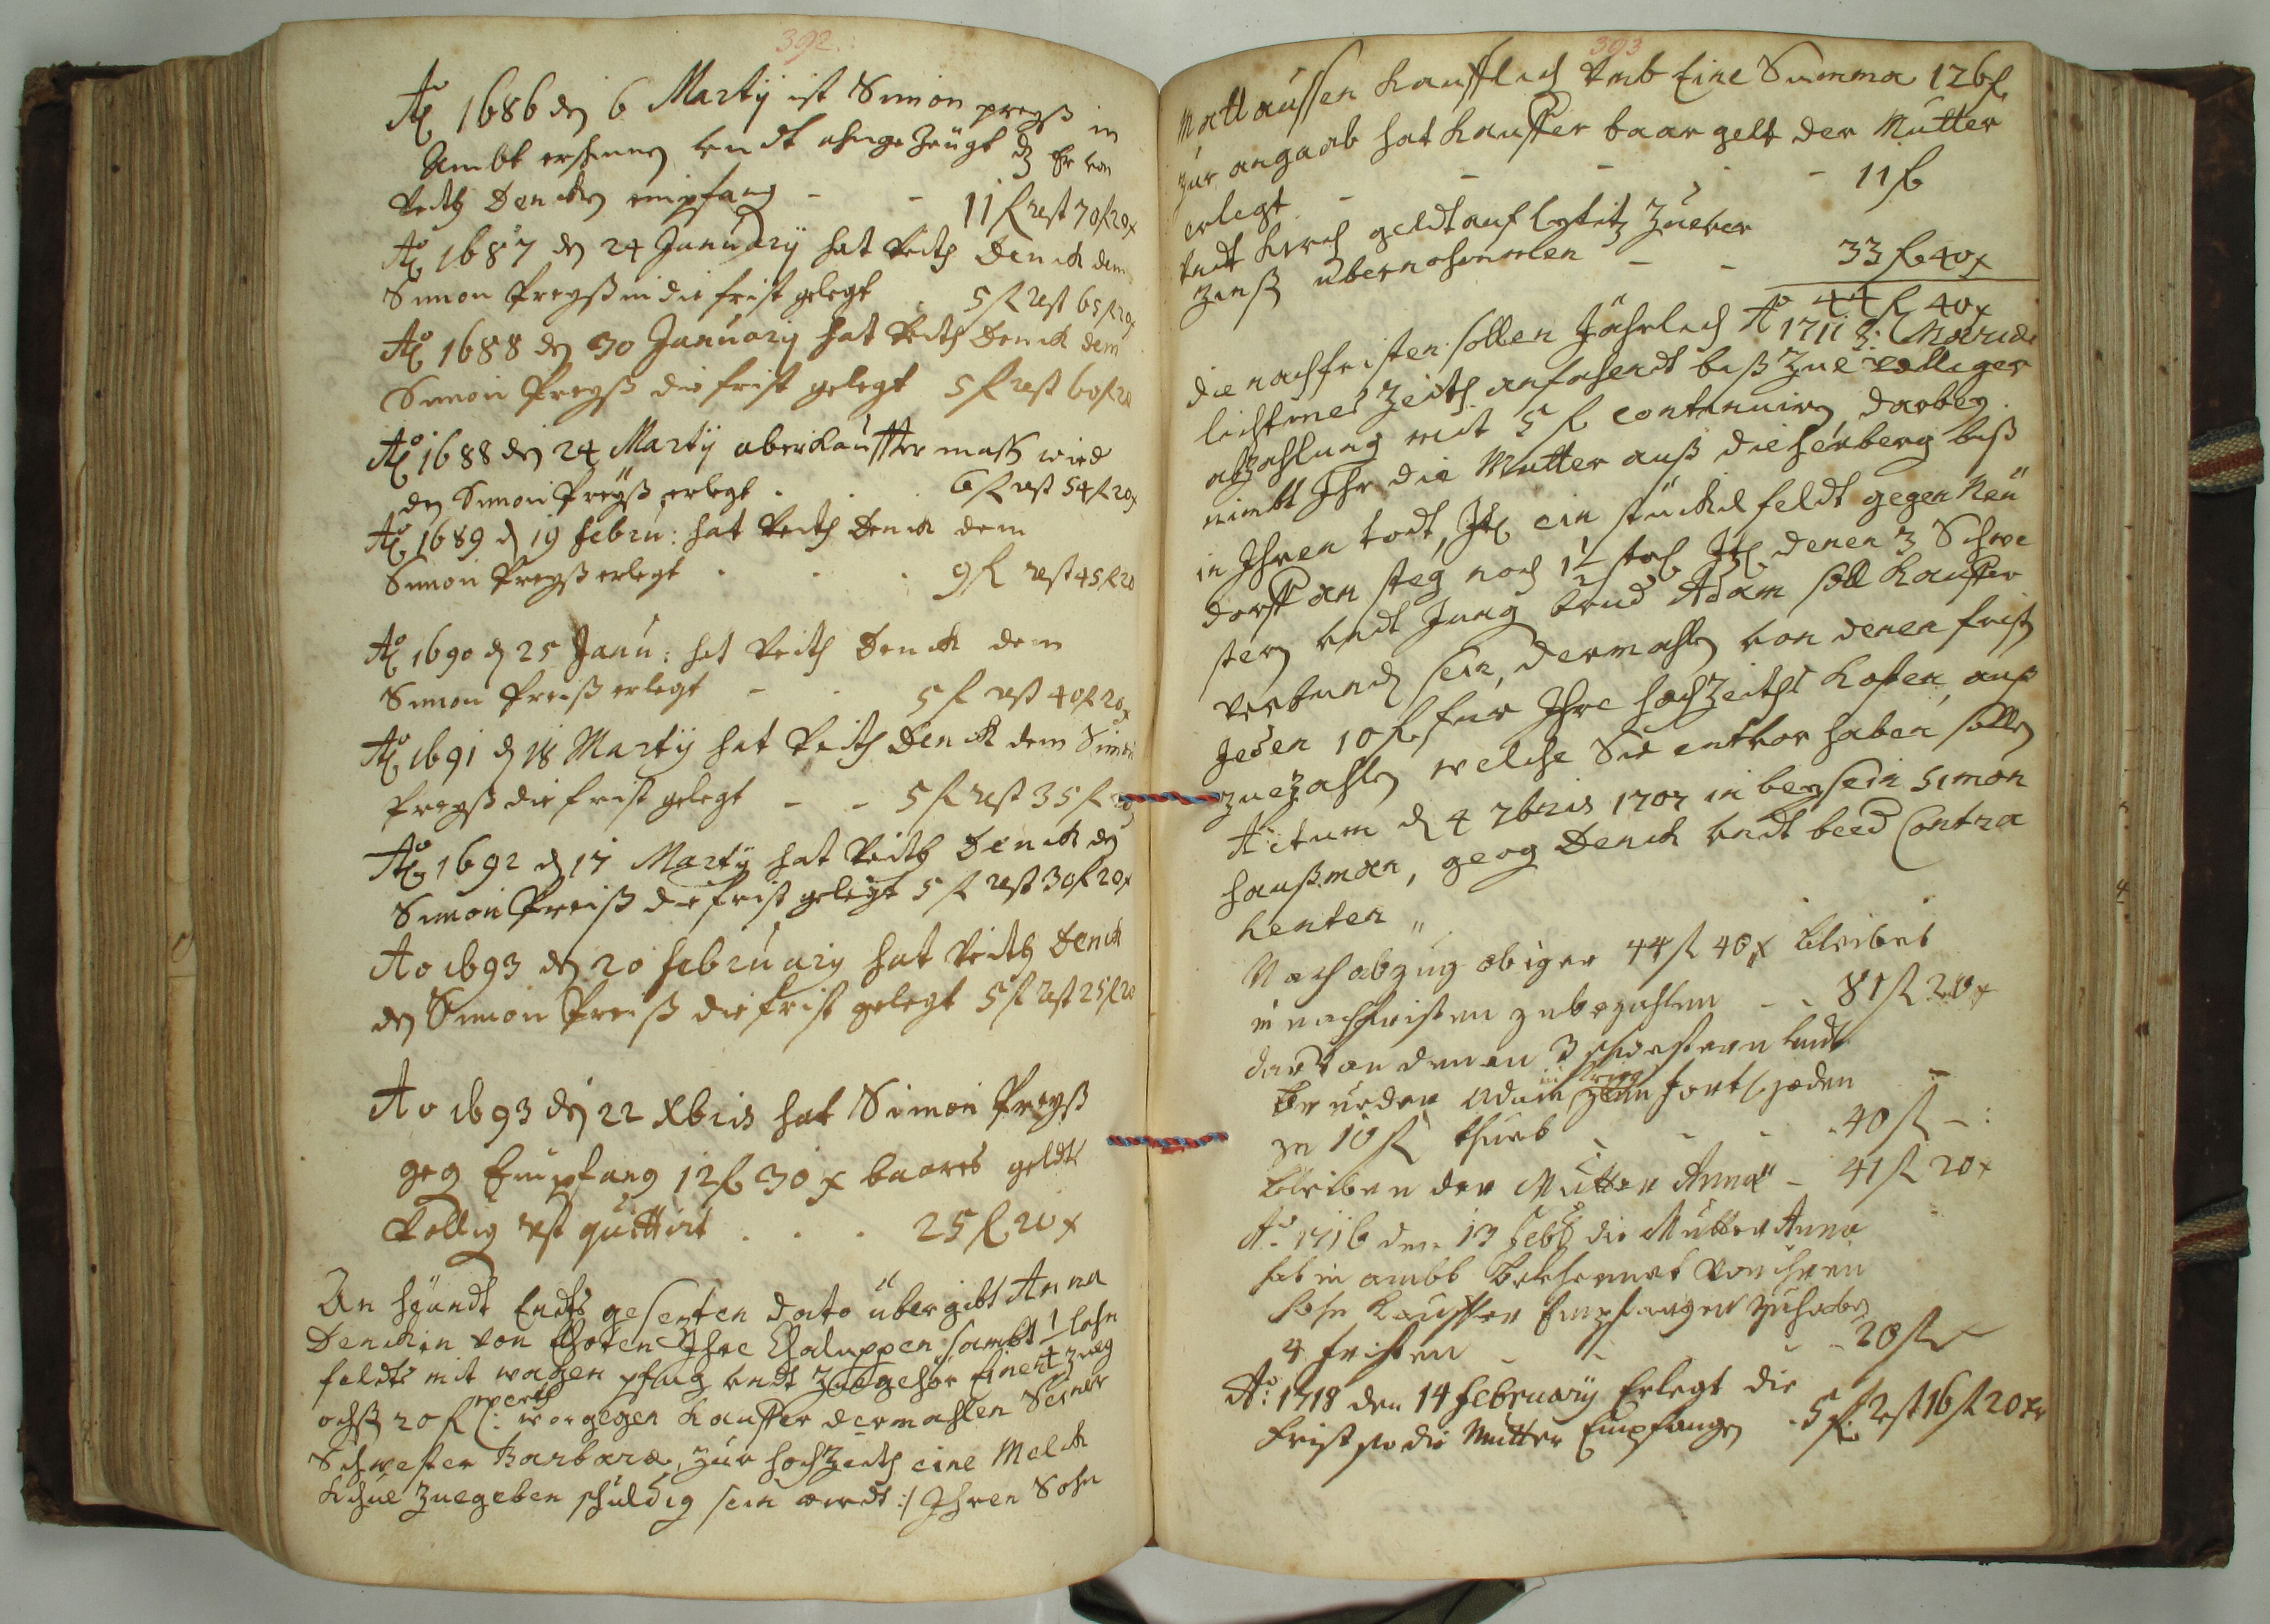 392.
Aō 1686 dē 6 Martij ist Simon preyß in
Ambt erschinen undt ahngezeugt dz Er von
Veith Dencken empfang - - 11 fl rest 70 fl 20x
Aō 1687 dē 24 January hat Veith Denck dem
Simon Preyß in die frist gelegt . 5 fl rest 65 fl 20x
Aō 1688 dē 30 January hat Veith Denck dem
Simon Preyß die frist gelegt 5 fl rest 60 fl 20
Aō 1688 dē 24 Martij aber Kauffter mass wird
dē Simon Preyß erlegt . . . 6 fl rest 54 fl 20x
Aō 1689 d 19 febru: hat Veith Denck dem
Simon Preyß erlegt . . . 9 fl rest 45 fl 20
Aō 1690 d 25 Janu: hat Veith Denck dem
Simon Preiß erlegt - . 5 fl rest 40 fl 20x
Aō 1691 d 18 Martij hat Veith Denck dem Simon
Preyß die frist gelegt - - 5 fl rest 35 fl
Aō 1692 d 17 Martij hat Veith Denck dē
Simon Preiß die frist gelegt 5 fl rest 30 fl 20x
Ao 1693 dē 20 february hat Veith Denck
dē Simon Preiß die frist gelegt 5 fl rest 25 fl 20
Ao 1693 dē 22 Xbris hat Simon Preyß
geg Empfang 12 fl 30 x baares geldts
Vollig rest quittirt . . . 25 fl 20 x
An heündt Endts gesezten dato übergibt Anna
Denckin von Ihre Chaluppen sambt 1 lahn
feldts mit wagen pflug undt zuegehör
ochß 20 fl werth: worgegen Kauffer dermahlen Seiner
Schwester Barbara, zur hochzeith eine Melck
Khue zuegeben schuldig sein wirdt :/ Ihren Sohn
393
Matthaussen Kaufflich umb Eine Summa 126 fl
zur angaab hat Kauffer baar gelt der Mutter
erlegt - - - - 11 fl
undt Kirch geldt auf zuever
zinß übernohmmen - - 33 fl 40x
44 fl 40x
die nachfristen sollen Jährlich Aō 1711 z: Mariae
lichtmes Zeith anfahendt biß zue völliger
abzahlung mit 5 fl continuirn, darbey
nimbt Ihr die Mutter auß die herberg biß
in Ihren todt, Itē ein stückhel feldt gegen Neü
dorff an steg noch 1½ Itē denen 3 Schwe
stern undt Jung brud Adam soll Kauffer
verbundē sein, dermahlē von denen fristē
Jeden 10 fl für Ihre hochzeiths Kosten, auß
zuezahlē welche Sie entvor haben sollē
Actum d 4 7bris 1707 in beysein Simon
haußman, georg Denck undt beed Contra
henten "
Nach abzug obiger 44 fl 40 x bleibet
in nachfristen zubezahlen - - 81 fl 20x
darvon denen 3 schwestern undt
Bruedern Adam fort/ jeden
zu 10 fl thuet - - - 40 fl - :
Bleiben der Mutter Anna - 41 fl 20x
Aō 1716 den 13 feb: die Mutter Anna
hat in ambt bekhennet von ihren
Sohn Kauffer Empfangen zuhaben
4 fristen - - - - 20 fl
Aō: 1718 den 14 february Erlegt die
frist so die Mutter Empfangen . 5 fl. rest 16 fl 20 xr